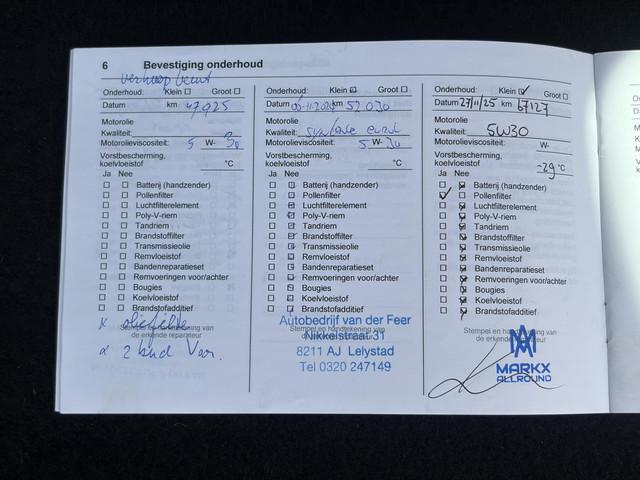 6 Bevestiging onderhoud
verkoop beurt
Onderhoud: Klein Groot
Datum km 47925
Motorolie
Kwaliteit:
Motorolieviscositeit: 5 W- 30
Vorstbescherming,
koelvloeistof °C
Ja Nee
Batterij (handzender)
Pollenfilter
Luchtfilterelement
Poly-V-riem
Tandriem
Brandstoffilter
Transmissieolie
Remvloeistof
Bandenreparatieset
Remvoeringen voor/achter
Bougies
Koelvloeistof
Brandstofadditief
x oliefilter
Stempel en handtekening van
de erkende reparateur
x 2 band Voor.
Onderhoud: Klein Groot
Datum km 52030
Motorolie
Kwaliteit:
Motorolieviscositeit: 5 W- 30
Vorstbescherming,
koelvloeistof °C
Ja Nee
Batterij (handzender)
Pollenfilter
Luchtfilterelement
Poly-V-riem
Tandriem
Brandstoffilter
Transmissieolie
Remvloeistof
Bandenreparatieset
Remvoeringen voor/achter
Bougies
Koelvloeistof
Brandstofadditief
Autobedrijf van der Feer
Stempel en handtekening van
Nikkelstraat 31
8211 AJ Lelystad
Tel 0320 247149
Onderhoud: Klein Groot
Datum 27/11/25 km 67127
Motorolie
Kwaliteit: 5W30
Motorolieviscositeit: W-
Vorstbescherming,
koelvloeistof -29 °C
Ja Nee
Batterij (handzender)
Pollenfilter
Luchtfilterelement
Poly-V-riem
Tandriem
Brandstoffilter
Transmissieolie
Remvloeistof
Bandenreparatieset
Remvoeringen voor/achter
Bougies
Koelvloeistof
Brandstofadditief
Stempel en handtekening van
de erkende reparateur
MARKX
ALLROUND